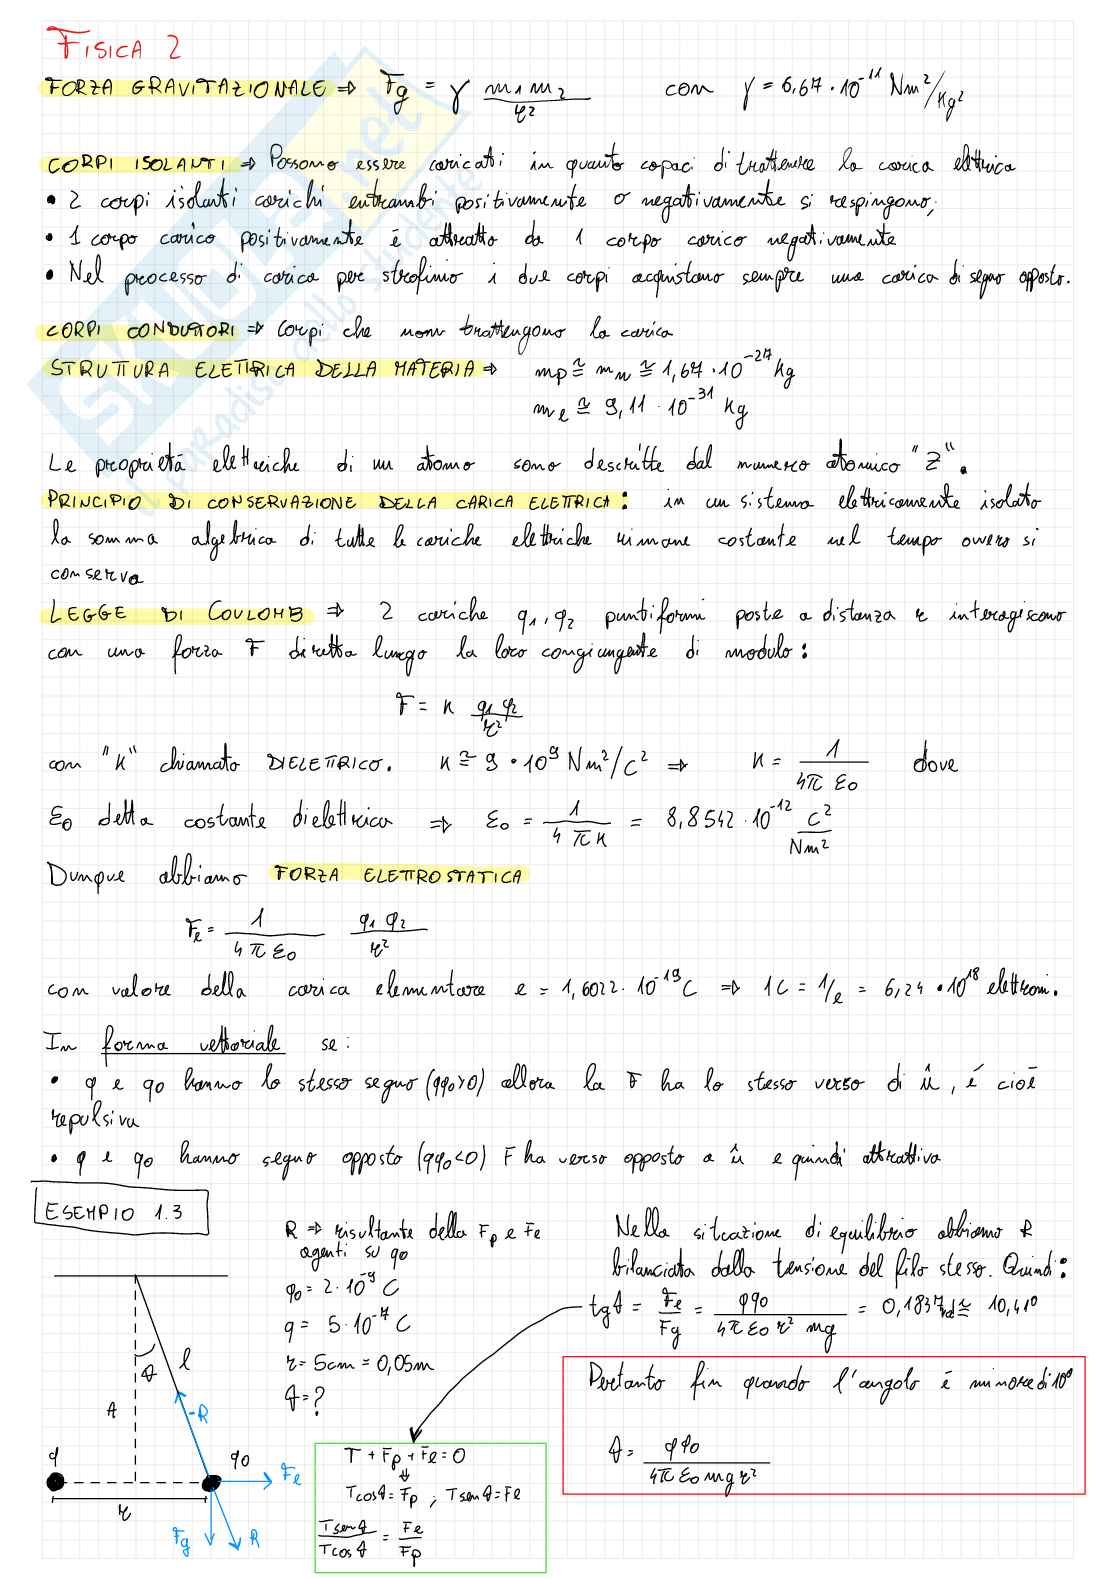 FISICA 2
FORZA GRAVITAZIONALE ⇒ Fg = γ m1 m2 / r² con γ = 6,67 · 10⁻¹¹ Nm²/Kg²
CORPI ISOLANTI ⇒ Possono essere caricati in quanto capaci di trattenere la carica elettrica
• 2 corpi isolanti carichi entrambi positivamente o negativamente si respingono;
• 1 corpo carico positivamente è attratto da 1 corpo carico negativamente
• Nel processo di carica per strofinio i due corpi acquistano sempre una carica di segno opposto.
CORPI CONDUTTORI ⇒ Corpi che non trattengono la carica
STRUTTURA ELETTRICA DELLA MATERIA ⇒ mp ≅ mn ≅ 1,67 · 10⁻²⁷ Kg
me ≅ 9,11 · 10⁻³¹ Kg
Le proprietà elettriche di un atomo sono descritte dal numero atomico "Z".
PRINCIPIO DI CONSERVAZIONE DELLA CARICA ELETTRICA: in un sistema elettricamente isolato
la somma algebrica di tutte le cariche elettriche rimane costante nel tempo ovvero si
conserva
LEGGE DI COULOMB ⇒ 2 cariche q1, q2 puntiformi poste a distanza r interagiscono
con una forza F diretta lungo la loro congiungente di modulo:
F = K q1 q2 / r²
con "K" chiamato DIELETTRICO. K ≅ 9 · 10⁹ Nm²/C² ⇒ K = 1 / 4π ε0 dove
ε0 detta costante dielettrica ⇒ ε0 = 1 / 4πK = 8,8542 · 10⁻¹² C² / Nm²
Dunque abbiamo FORZA ELETTROSTATICA
Fe = 1 / 4π ε0 q1 q2 / r²
con valore della carica elementare e = 1,6022 · 10⁻¹⁹ C ⇒ 1C = 1/e = 6,24 · 10¹⁸ elettroni.
In forma vettoriale se:
• q e q0 hanno lo stesso segno (qq0>0) allora la F ha lo stesso verso di û, è cioè
repulsiva
• q e q0 hanno segno opposto (qq0<0) F ha verso opposto a û e quindi attrattiva
ESEMPIO 1.3
R ⇒ risultante della Fp e Fe
agenti su q0
q0 = 2 · 10⁻⁹ C
q = 5 · 10⁻⁷ C
r = 5cm = 0,05m
θ = ?
Nella situazione di equilibrio abbiamo R
bilanciata dalla tensione del filo stesso. Quindi:
tgθ = Fe / Fg = qq0 / 4π ε0 r² mg = 0,1837 rd ≅ 10,41°
Pertanto fin quando l'angolo è minore di 10°
θ = qq0 / 4π ε0 mg r²
θ
l
A
-R
q
q0
Fe
r
Fg
R
T + Fp + Fe = 0
⇓
Tcosθ = Fp ; Tsenθ = Fe
Tsenθ / Tcosθ = Fe / Fp